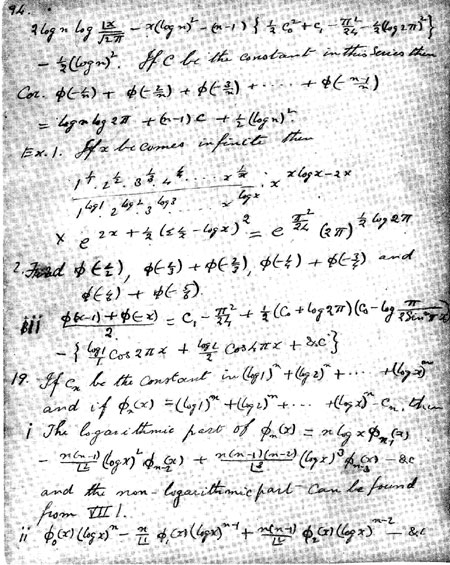 94.
2 log n log ⌊x/√2π − x(log n)² − (n−1) { ½ C₀² + C₁ − π²/24 − ½(log 2π)² }
− ½(log n)². If C be the constant in this series then
Cor. φ(−1/n) + φ(−2/n) + φ(−3/n) + ..... + φ(−(n−1)/n)
= log n log 2π + (n−1) C + ½(log n)².
Ex. 1. If x becomes infinite then
1^{1/1} . 2^{1/2} . 3^{1/3} . 4^{1/4} ...... x^{1/x} / 1^{log 1} . 2^{log 2} . 3^{log 3} ...... x^{log x} . x^{x log x − 2x}
× e^{2x + ½(Σ 1/x − log x)²} = e^{π²/24} (2π)^{½ log 2π}
2. Find φ(−1/2), φ(−1/3) + φ(−2/3), φ(−1/4) + φ(−3/4) and
φ(−1/6) + φ(−5/6).
iii φ(x−1) + φ(−x) / 2 = C₁ − π²/24 + ½(C₀ + log 2π)(C₀ − log π/2 Sin² πx)
− { log 1/1 Cos 2πx + log 2/2 Cos 4πx + &c }
19. If Cₙ be the constant in (log 1)ⁿ + (log 2)ⁿ + .... + (log x)ⁿ
and if φₙ(x) = (log 1)ⁿ + (log 2)ⁿ + .... + (log x)ⁿ − Cₙ, then
i The logarithmic part of φₙ(x) = n log x φₙ₋₁(x)
− n(n−1)/⌊2 (log x)² φₙ₋₂(x) + n(n−1)(n−2)/⌊3 (log x)³ φₙ₋₃(x) − &c
and the non-logarithmic part can be found
from VII 1.
ii φ₀(x)(log x)ⁿ − n/⌊1 φ₁(x)(log x)ⁿ⁻¹ + n(n−1)/⌊2 φ₂(x)(log x)ⁿ⁻² − &c